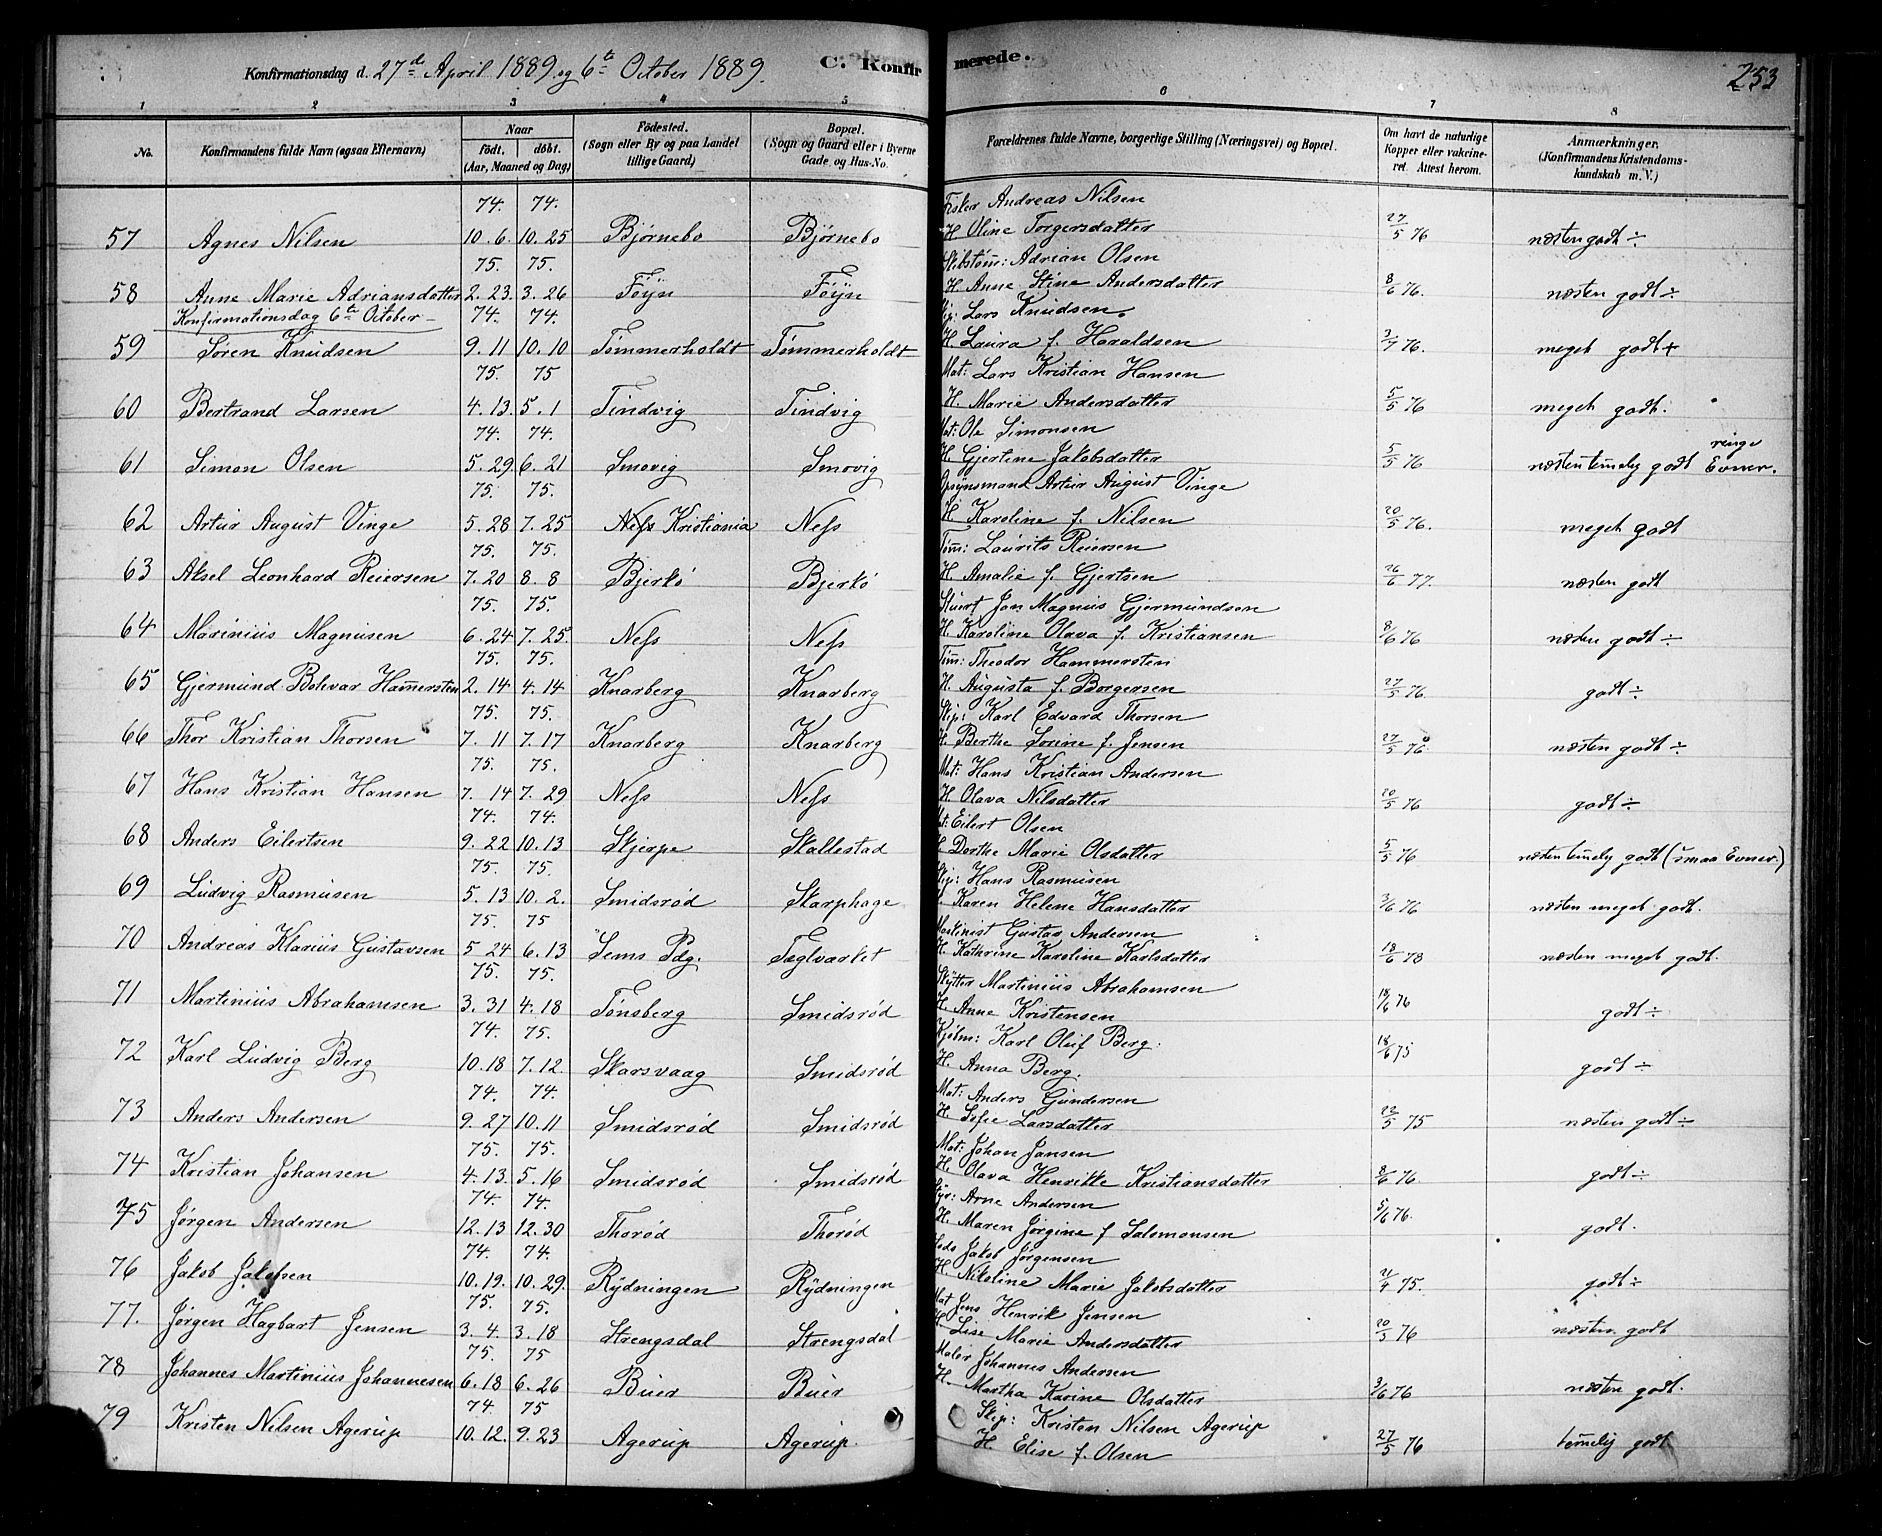 Konfirmationsdag d. 27de April 1889 og 6te October 1889. C. Konfirmerede. 253
1 2 3 4 5 6 7 8
No. Konfirmandens fulde Navn (ogsaa Efternavn) Naar födt. döbt. (Aar, Maaned og Dag) Födested. (Sogn eller By og paa Landet tillige Gaard) Bopæl. (Sogn og Gaard eller i Byerne Gade og Hus-No. Forældrenes fulde Navne, borgerlige Stilling (Næringsvei) og Bopæl. Om havt de naturlige Kopper eller vakcineret. Attest herom. Anmærkninger. (Konfirmandens Kristendomskundskab m. V.)
74. 74. Fisker Andreas Nilsen
57 Agnes Nilsen 10.6. 10.25 Bjørnebo Bjørnebo H. Oline Torgersdatter 27/5 76 næsten godt ÷
75. 75. Skibstøm: Adrian Olsen
58 Anne Marie Adriansdatter 2.23. 3.26 Föyn Föyn H. Anne Stine Andersdatter 8/6 76. næsten godt ÷
Konfirmationsdag 6te October — 74. 74. Skip: Lars Knudsen.
59 Søren Knudsen 9.11 10.10 Tømmerholdt Tømmerholdt H. Laura f. Haraldsen 3/7 76. meget godt +
75. 75 Mat: Lars Kristian Hansen
60 Bertrand Larsen 4.13. 5.1 Tindvig Tindvig H. Marie Andersdatter 5/5 76 meget godt.
74. 74. Mat: Ole Simonsen
61 Simon Olsen 5.29. 6.21 Smovig Smovig H. Gjertine Jakobsdatter 5/5 76 næsten temelig godt ringe Evner.
75. 75. Opsynsmand Artur August Vinge
62 Artur August Vinge 5.28 7.25 Kristiania Nefs H. Karoline f. Nilsen 20/5 76. meget godt
75. 75. Tøm: Laurits Reiersen
63 Aksel Leonhard Reiersen 7.20 8.8 Bjerkö Bjerkö H. Amalie f. Gjertsen 26/6 77. næsten godt
75. 75. Stuert Jan Magnus Gjermundsen
64 Marinius Magnusen 6.24 7.25. Nefs Nefs H. Karoline Olava f. Kristiansen 8/6 76 næsten godt ÷
75. 75. Tøm: Theodor Hammersten
65 Gjermund Bolevar Hamersten 2.14 4.14 Knarberg Knarberg H. Augusta f. Borgersen 27/5 76. godt ÷
75. 75. Skip: Karl Edvard Thorsen
66 Thor Kristian Thorsen 7.11 7.17 Knarberg Knarberg H. Berthe Sorine f. Jensen 27/5 76. næsten godt ÷
75. 75. Mat: Hans Kristian Andersen
67 Hans Kristian Hansen 7.14 7.29 Nefs Nefs H. Olava Nilsdatter 20/5 76 godt ÷
74. 74. Mat: Eilert Olsen
68 Anders Eilertsen 9.22 10.13 Skjerpe Skallestad H. Dorthe Marie Olsdatter 5/5 76 næsten temelig godt (smaa Evner.)
75. 75. Skip: Hans Rasmusen
69 Ludvig Rasmusen 5.13 10.2. Smidsrød Skarphage H. Karen Helene Hansdatter 3/6 76 næsten meget godt.
75. 75 Maskinist Gustav Andersen
70 Andreas Klarius Gustavsen 5 24 6.13 Sems Pdg. Teglværket H. Kathrine Karoline Karlsdatter 18/6 78 næsten meget godt.
75. 75. Skytter Martinius Abrahamsen
71 Martinius Abrahamsen 3.31 4.18 Tønsberg Smidsrød H. Anne Kristensen 18/6 76 godt ÷
74. 75. Kjøbm: Karl Oluf Berg.
72 Karl Ludvig Berg 10.18 7.12. Skarsvaag Smidsrød H. Anna Berg. 18/6 75 godt ÷
74. 74. Mat: Anders Gundersen
73 Anders Andersen 9.27 10.11 Smidsrød Smidsrød H. Sofie Larsdatter 22/5 75 næsten godt ÷
75. 75. Mat: Johan Jansen
74 Kristian Johansen 4.13. 5.16 Smidsrød Smidsrød H. Olava Henrikke Kristiansdatter 8/6 76 godt ÷
74. 74. Arne Andersen
75 Jørgen Andersen 12.13 12.30 Thorød Thorød H. Maren Jørgine f Salomonsen 5/6 76. godt.
74. 74. Jakob Jørgensen
76 Jakob Jakobsen 10.19. 10.29. Rydningen Rydningen H. Nikoline Marie Jakobsdatter 21/4 75. godt ÷
75. 75. Mat Jens Henrik Jensen
77. Jørgen Hagbart Jensen 3.4. 3.18 Strengsdal Strengsdal H. Lise Marie Andersdatter 20/5 76 næsten godt
75. 75 Maler Johannes Andersen
78 Johannes Martinius Johannesen 6.18 6.26 Buer Buer H. Martha Karine Olsdatter 3/6 76 næsten godt.
74 75 Skip: Kristen Nilsen Agerup
79 Kristen Nilsen Agerup 10.12. 9.23 Agerup Agerup. H. Elise f. Olsen 27/5 76 temelig godt